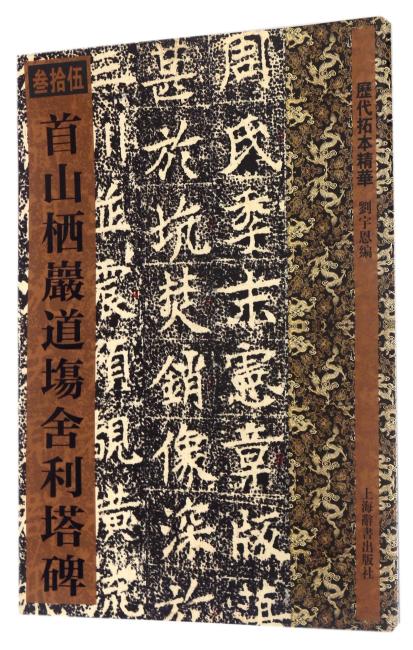 叁拾伍
首山栖巖道塲舍利塔碑
歷代拓本精華
劉宇恩編
上海辭書出版社
周氏季末憲章版
甚於坑焚銷像深於
三川並震